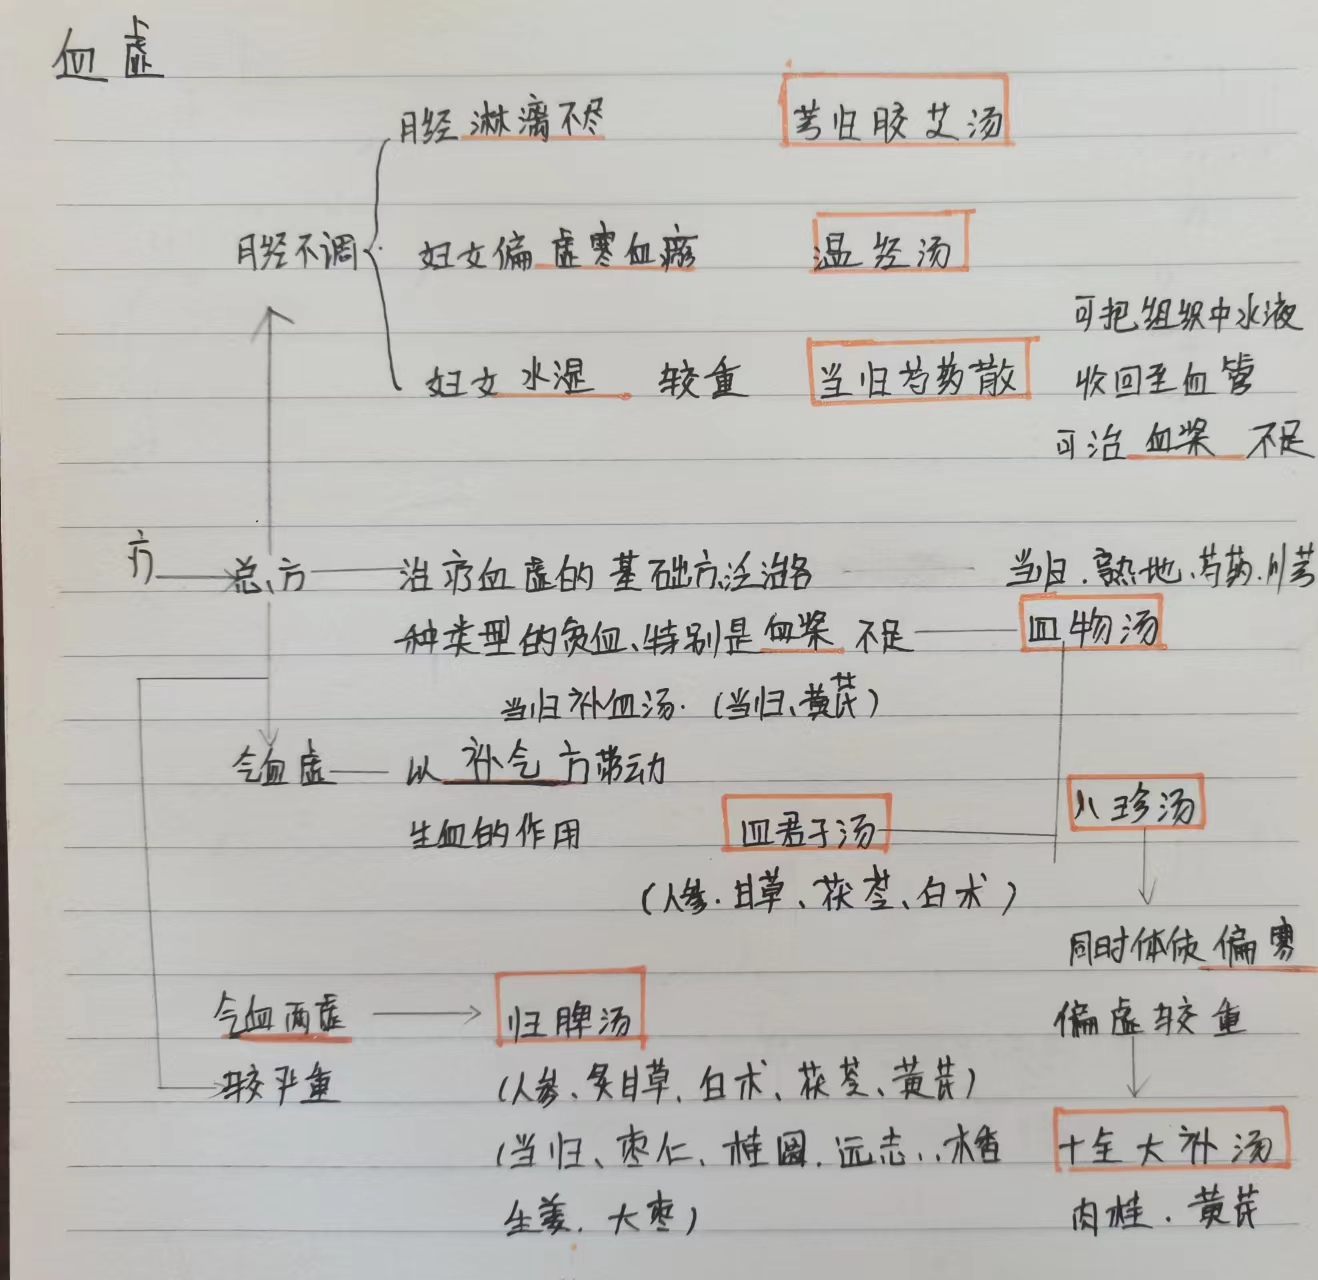 血虚
月经淋漓不尽 芎归胶艾汤
月经不调 妇女偏虚寒血瘀 温经汤
可把组织中水液
妇女水湿 较重 当归芍药散 收回至血管
可治血浆不足
方 总方 治疗血虚的基础方泛治各 当归、熟地、芍药、川芎
种类型的贫血、特别是血浆不足 四物汤
当归补血汤. (当归、黄芪)
气血虚 以补气方带动
生血的作用 四君子汤 八珍汤
(人参. 甘草、茯苓、白术)
同时体质偏寒
气血两虚 归脾汤 偏虚较重
较严重 (人参、炙甘草、白术、茯苓、黄芪)
(当归、枣仁、桂圆、远志、木香 十全大补汤
生姜、大枣) 肉桂. 黄芪